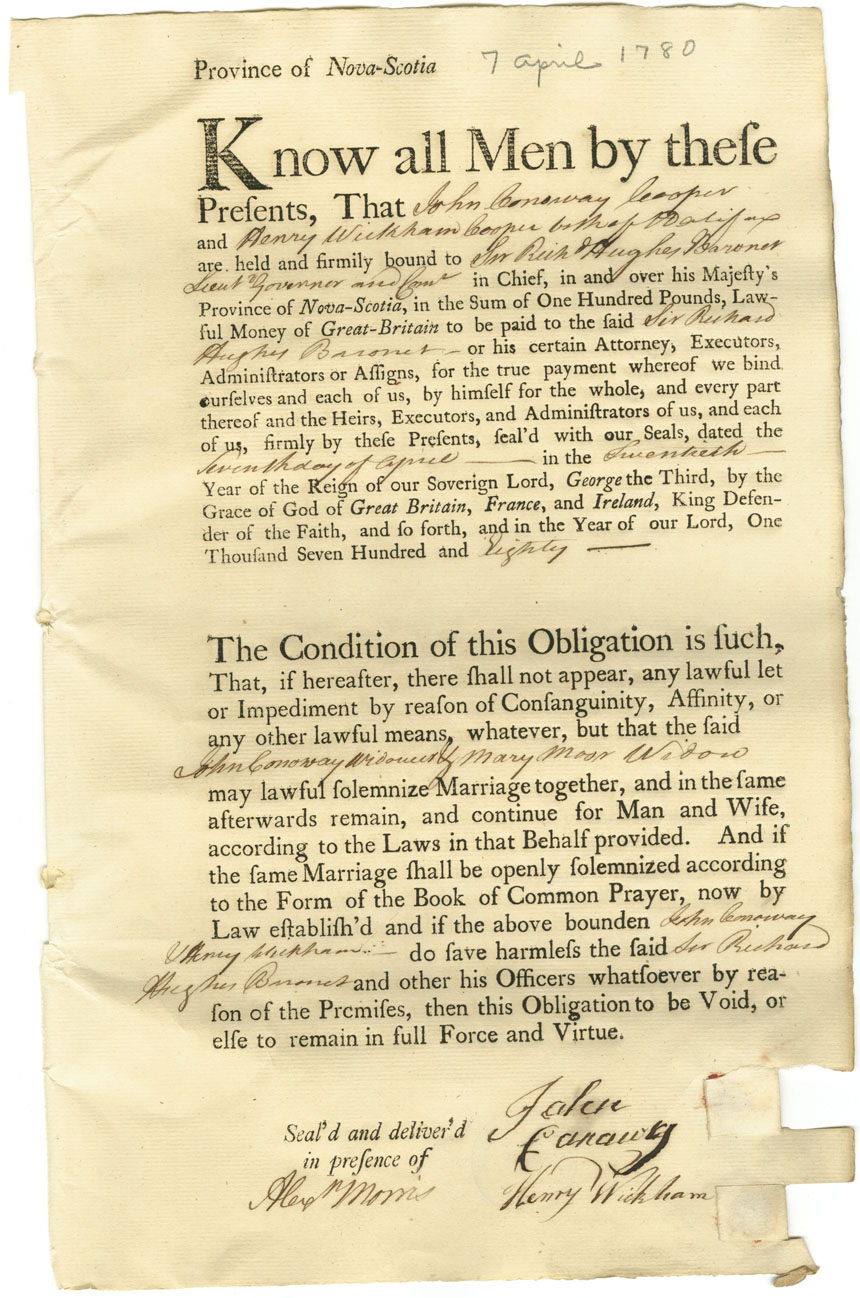 Province of Nova-Scotia 7 april 1780
Know all Men by theſe
Preſents, That John Conoway Cooper
and Henry Wickham Cooper both of Halifax
are held and firmily bound to Sir Richd Hughes Baronet
Lieut Governor and Comr in Chief, in and over his Majeſty's
Province of Nova-Scotia, in the Sum of One Hundred Pounds, Law-
ful Money of Great-Britain to be paid to the ſaid Sir Richard
Hughes Baronet — or his certain Attorney, Executors,
Adminiſtrators or Aſſigns, for the true payment whereof we bind
ourſelves and each of us, by himſelf for the whole, and every part
thereof and the Heirs, Executors, and Adminiſtrators of us, and each
of us, firmly by theſe Preſents, ſeal'd with our Seals, dated the
Seventh day of April — in the Twentieth —
Year of the Reign of our Soverign Lord, George the Third, by the
Grace of God of Great Britain, France, and Ireland, King Defen-
der of the Faith, and ſo forth, and in the Year of our Lord, One
Thouſand Seven Hundred and Eighty —
The Condition of this Obligation is ſuch,
That, if hereafter, there ſhall not appear, any lawful let
or Impediment by reaſon of Conſanguinity, Affinity, or
any other lawful means, whatever, but that the ſaid
John Conoway Widower & Mary Moor Widow
may lawful ſolemnize Marriage together, and in the ſame
afterwards remain, and continue for Man and Wife,
according to the Laws in that Behalf provided. And if
the ſame Marriage ſhall be openly ſolemnized according
to the Form of the Book of Common Prayer, now by
Law eſtabliſh'd and if the above bounden John Conoway
& Henry Wickham — do ſave harmleſs the ſaid Sir Richard
Hughes Baronet and other his Officers whatſoever by rea-
ſon of the Premiſes, then this Obligation to be Void, or
elſe to remain in full Force and Virtue.
Seal'd and deliver'd
in preſence of
Alexr Morris
John
Canaway
Henry Wickham